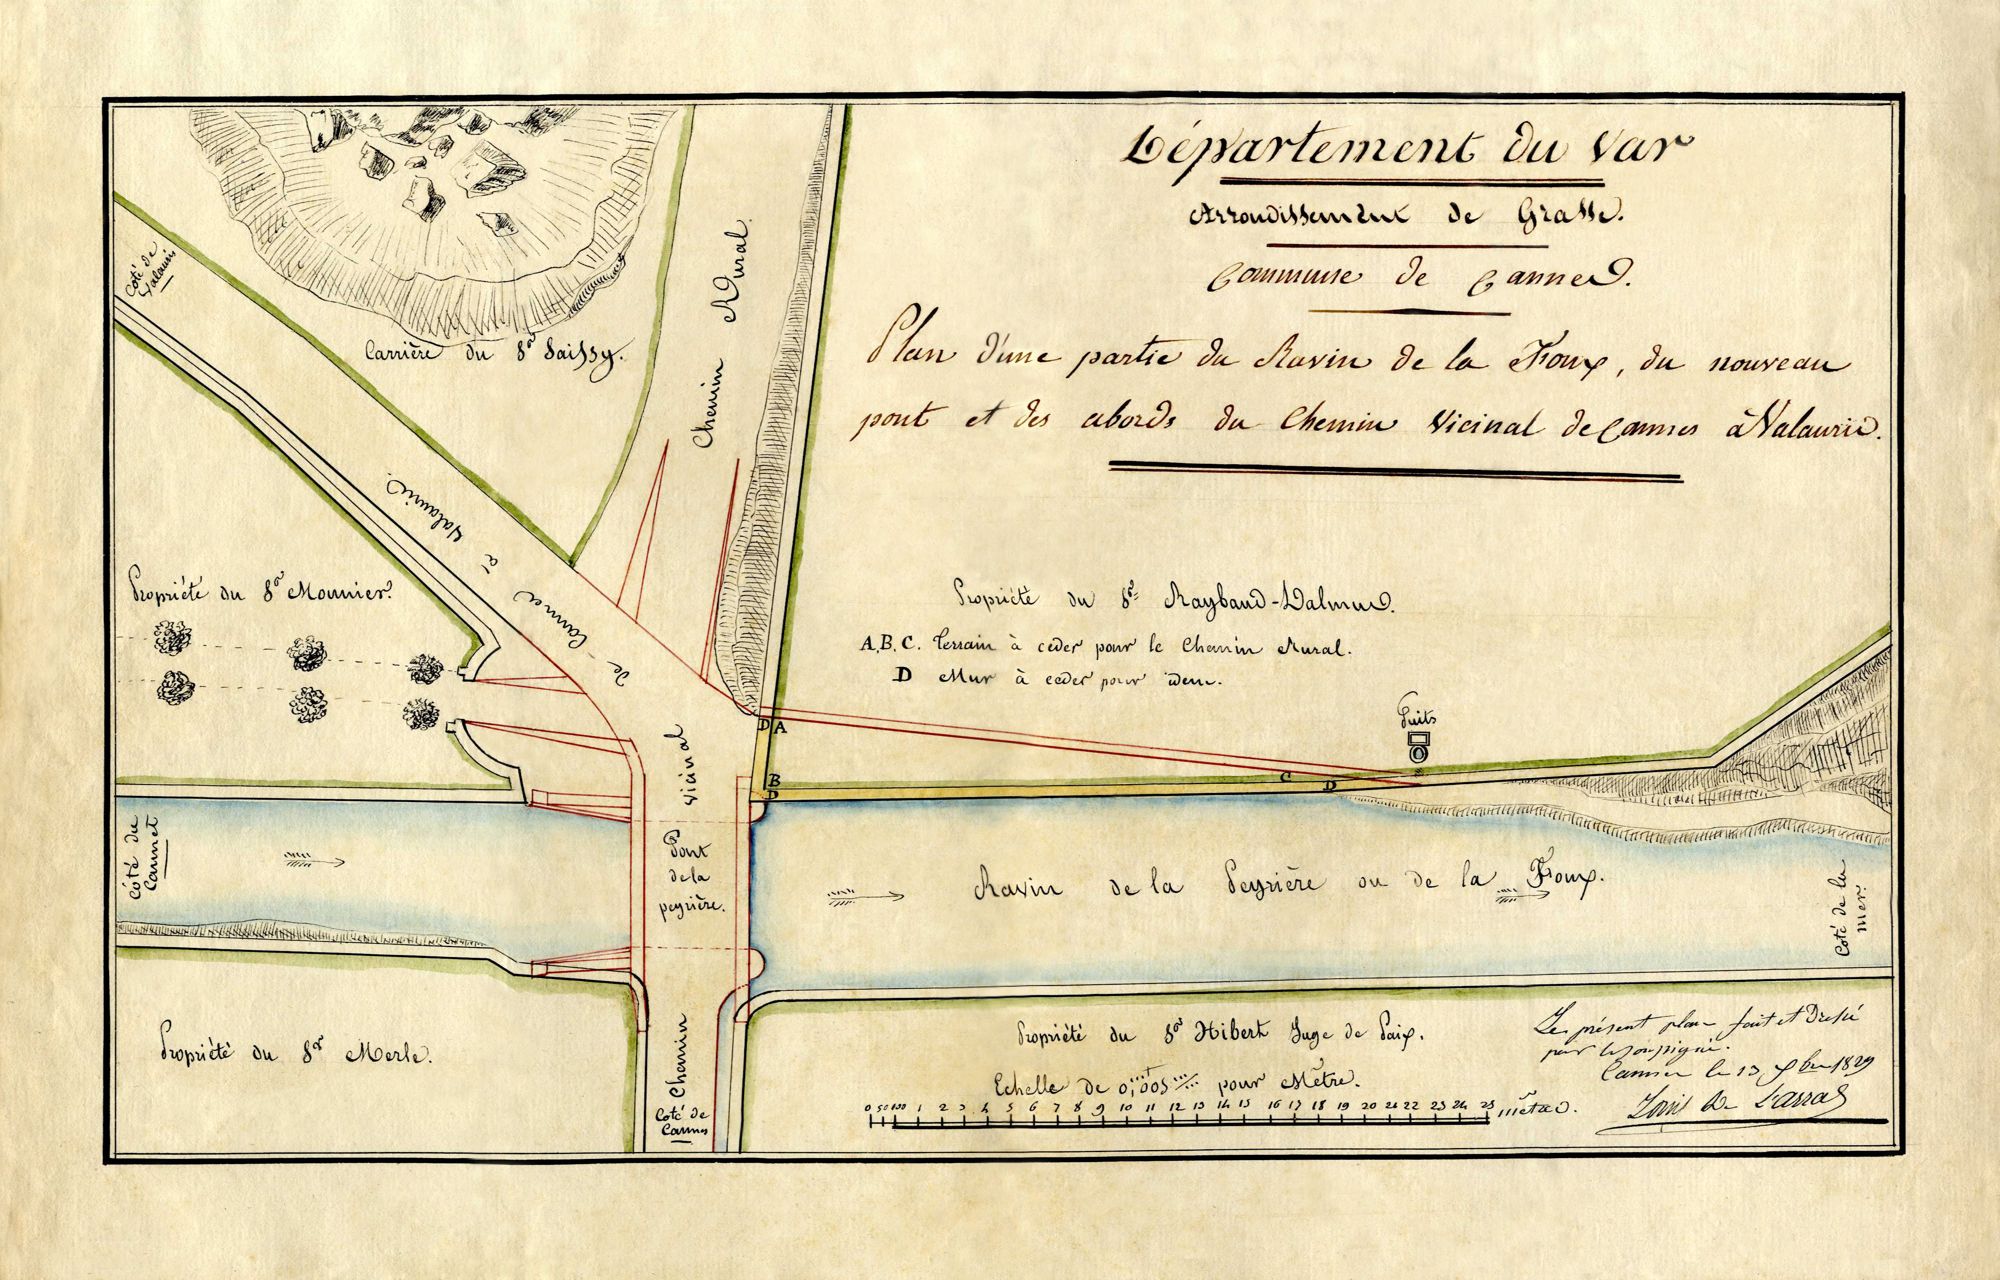 Département du Var
Arrondissement de Grasse.
Commune de Cannes.
Plan d'une partie du Ravin de la Foux, du nouveau
pont et des abords du Chemin Vicinal de Cannes à Valauris.
Côté de
Valauris
Carrière du Sr Saissy.
Chemin Rural.
Chemin Vicinal de Cannes à Valauris
Propriété du Sr Mounier.
Propriété du Sr Raybaud-Dalmas.
A, B, C. Terrain à céder pour le Chemin Rural.
D Mur à céder pour idem.
Puits
D A
B
D
C
D
Côté du
Cannet
Pont
de la
peyrière.
Ravin de la Peyrière ou de la Foux.
Côté de la
mer.
Propriété du Sr Merle.
Côté de
Cannes
Propriété du Sr Hibert Juge de Paix.
Echelle de 0,005 pour Mètre.
0 50 100 1 2 3 4 5 6 7 8 9 10 11 12 13 14 15 16 17 18 19 20 21 22 23 24 25 mètres.
Le présent plan fait et Dressé
par le soussigné.
Cannes le 13 1829
Louis De